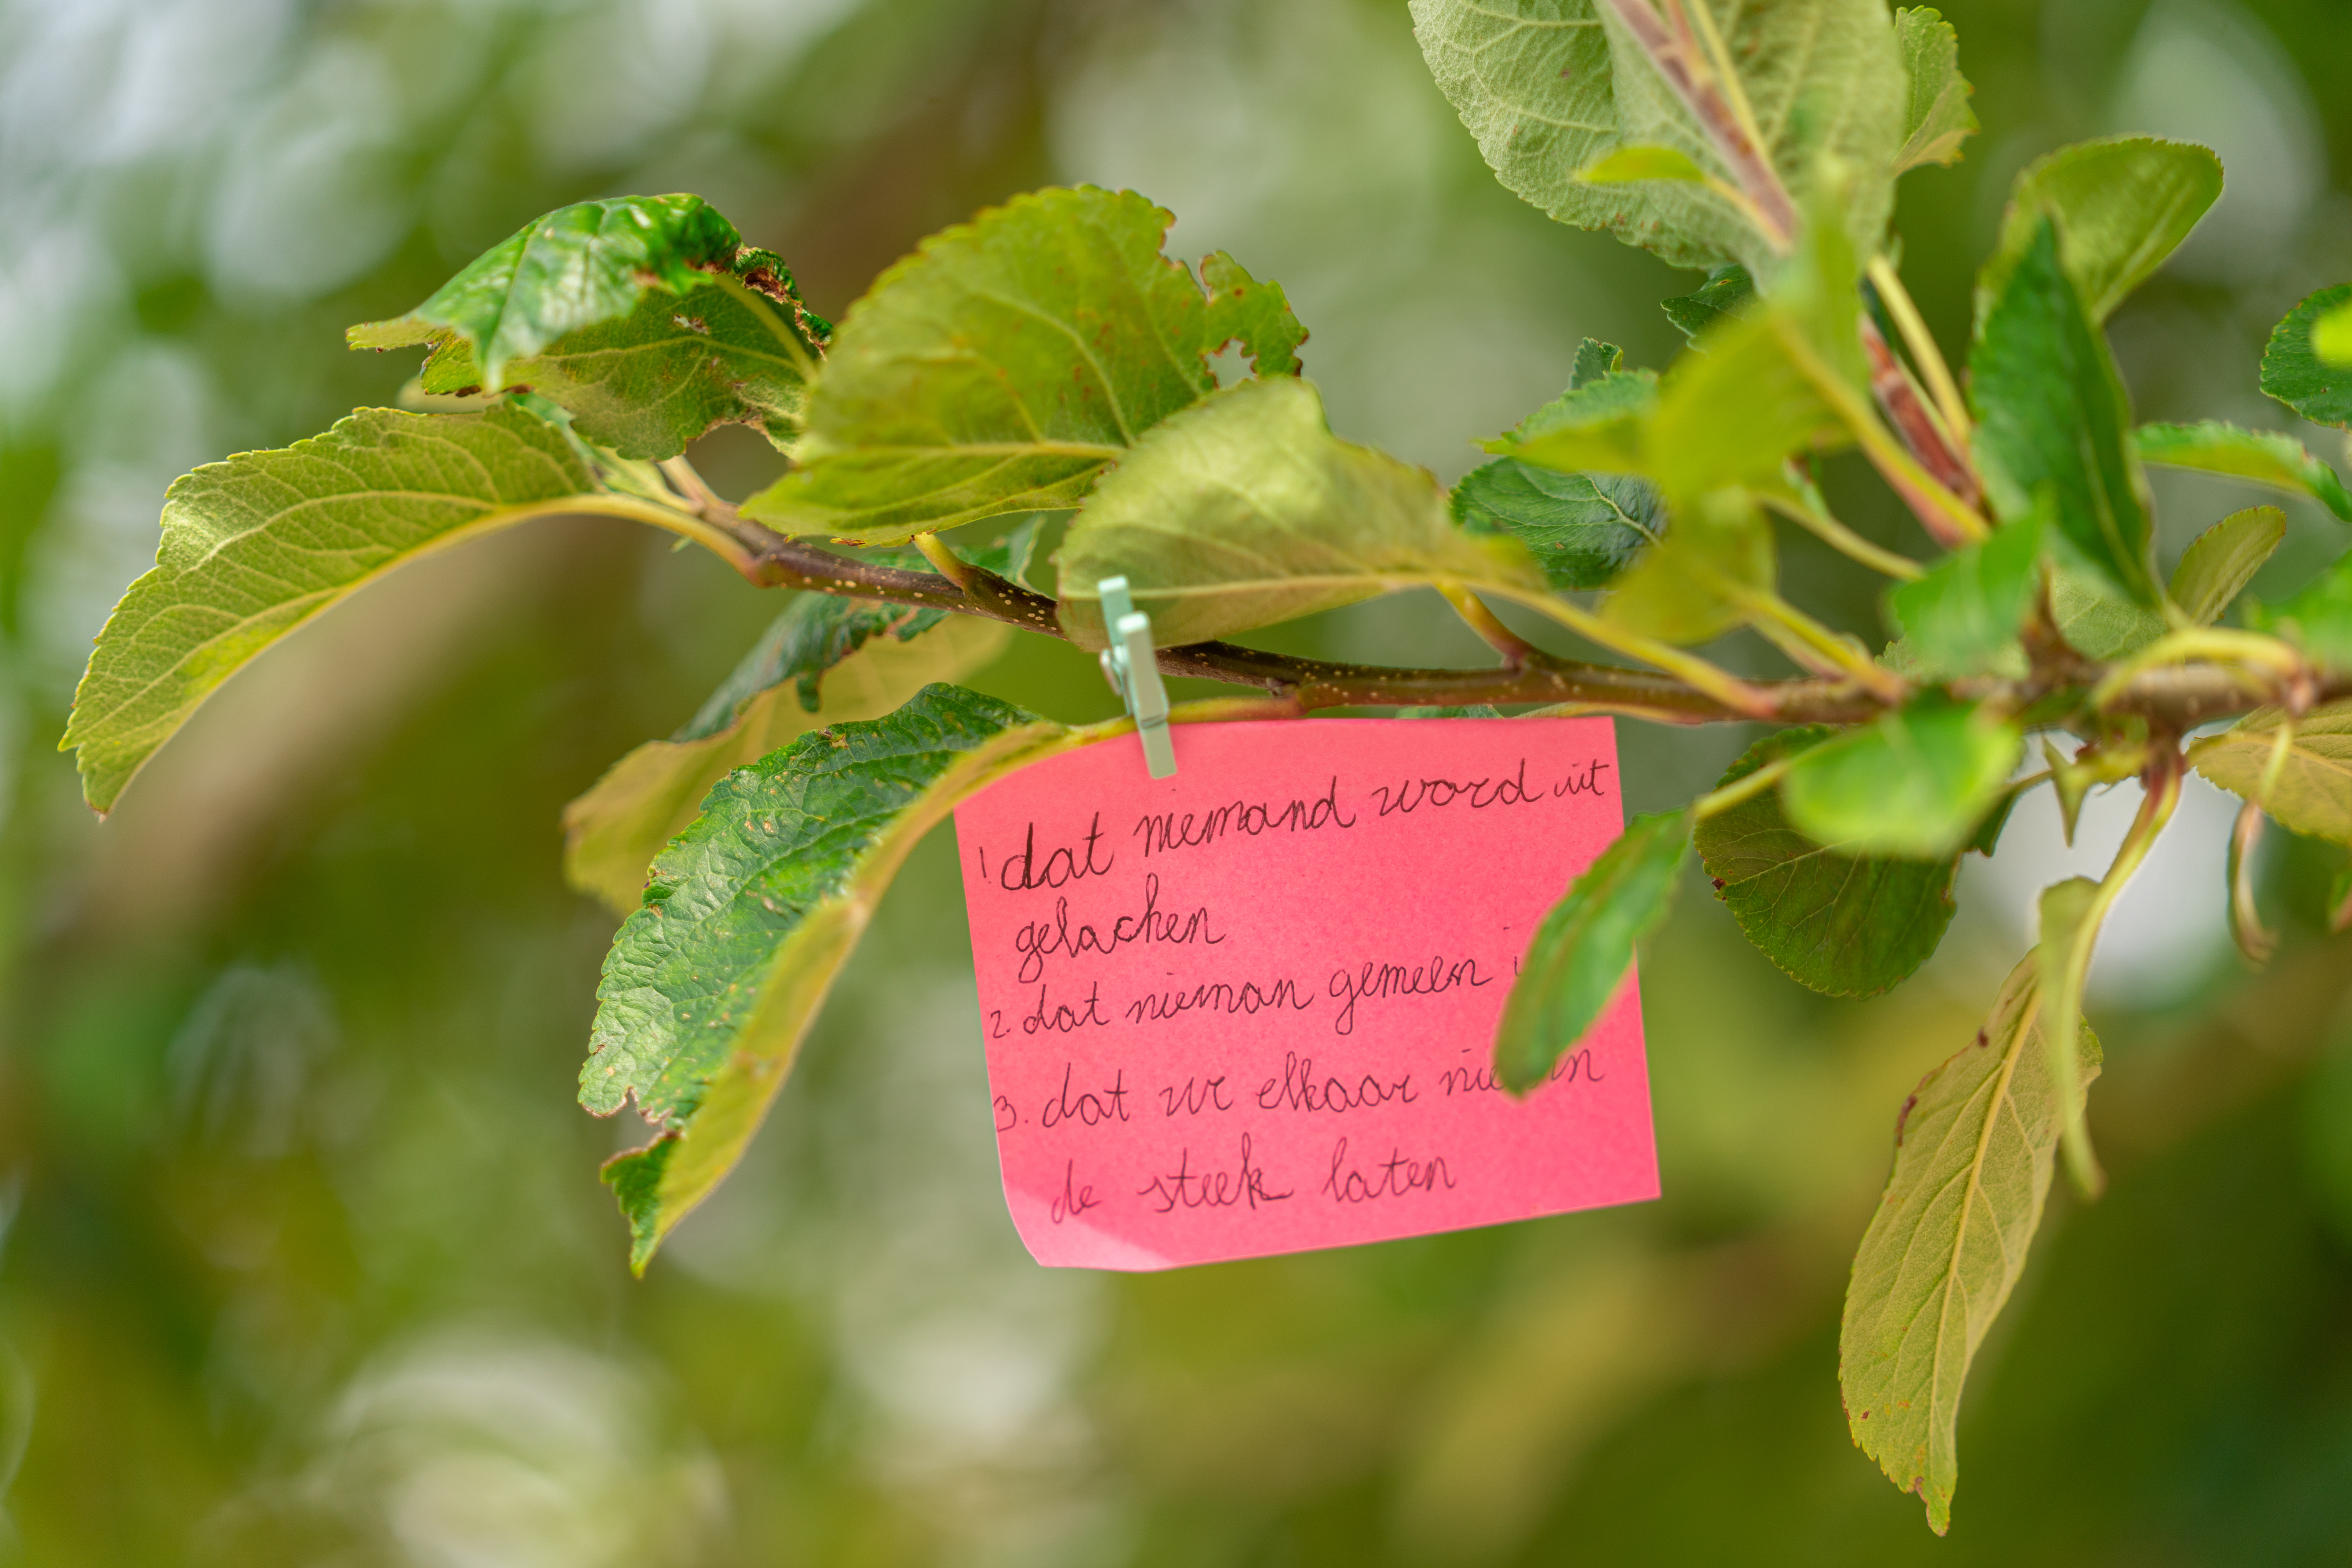 1 dat niemand word uit
gelachen
2. dat nieman gemeen
3. dat we elkaar in
de steek laten